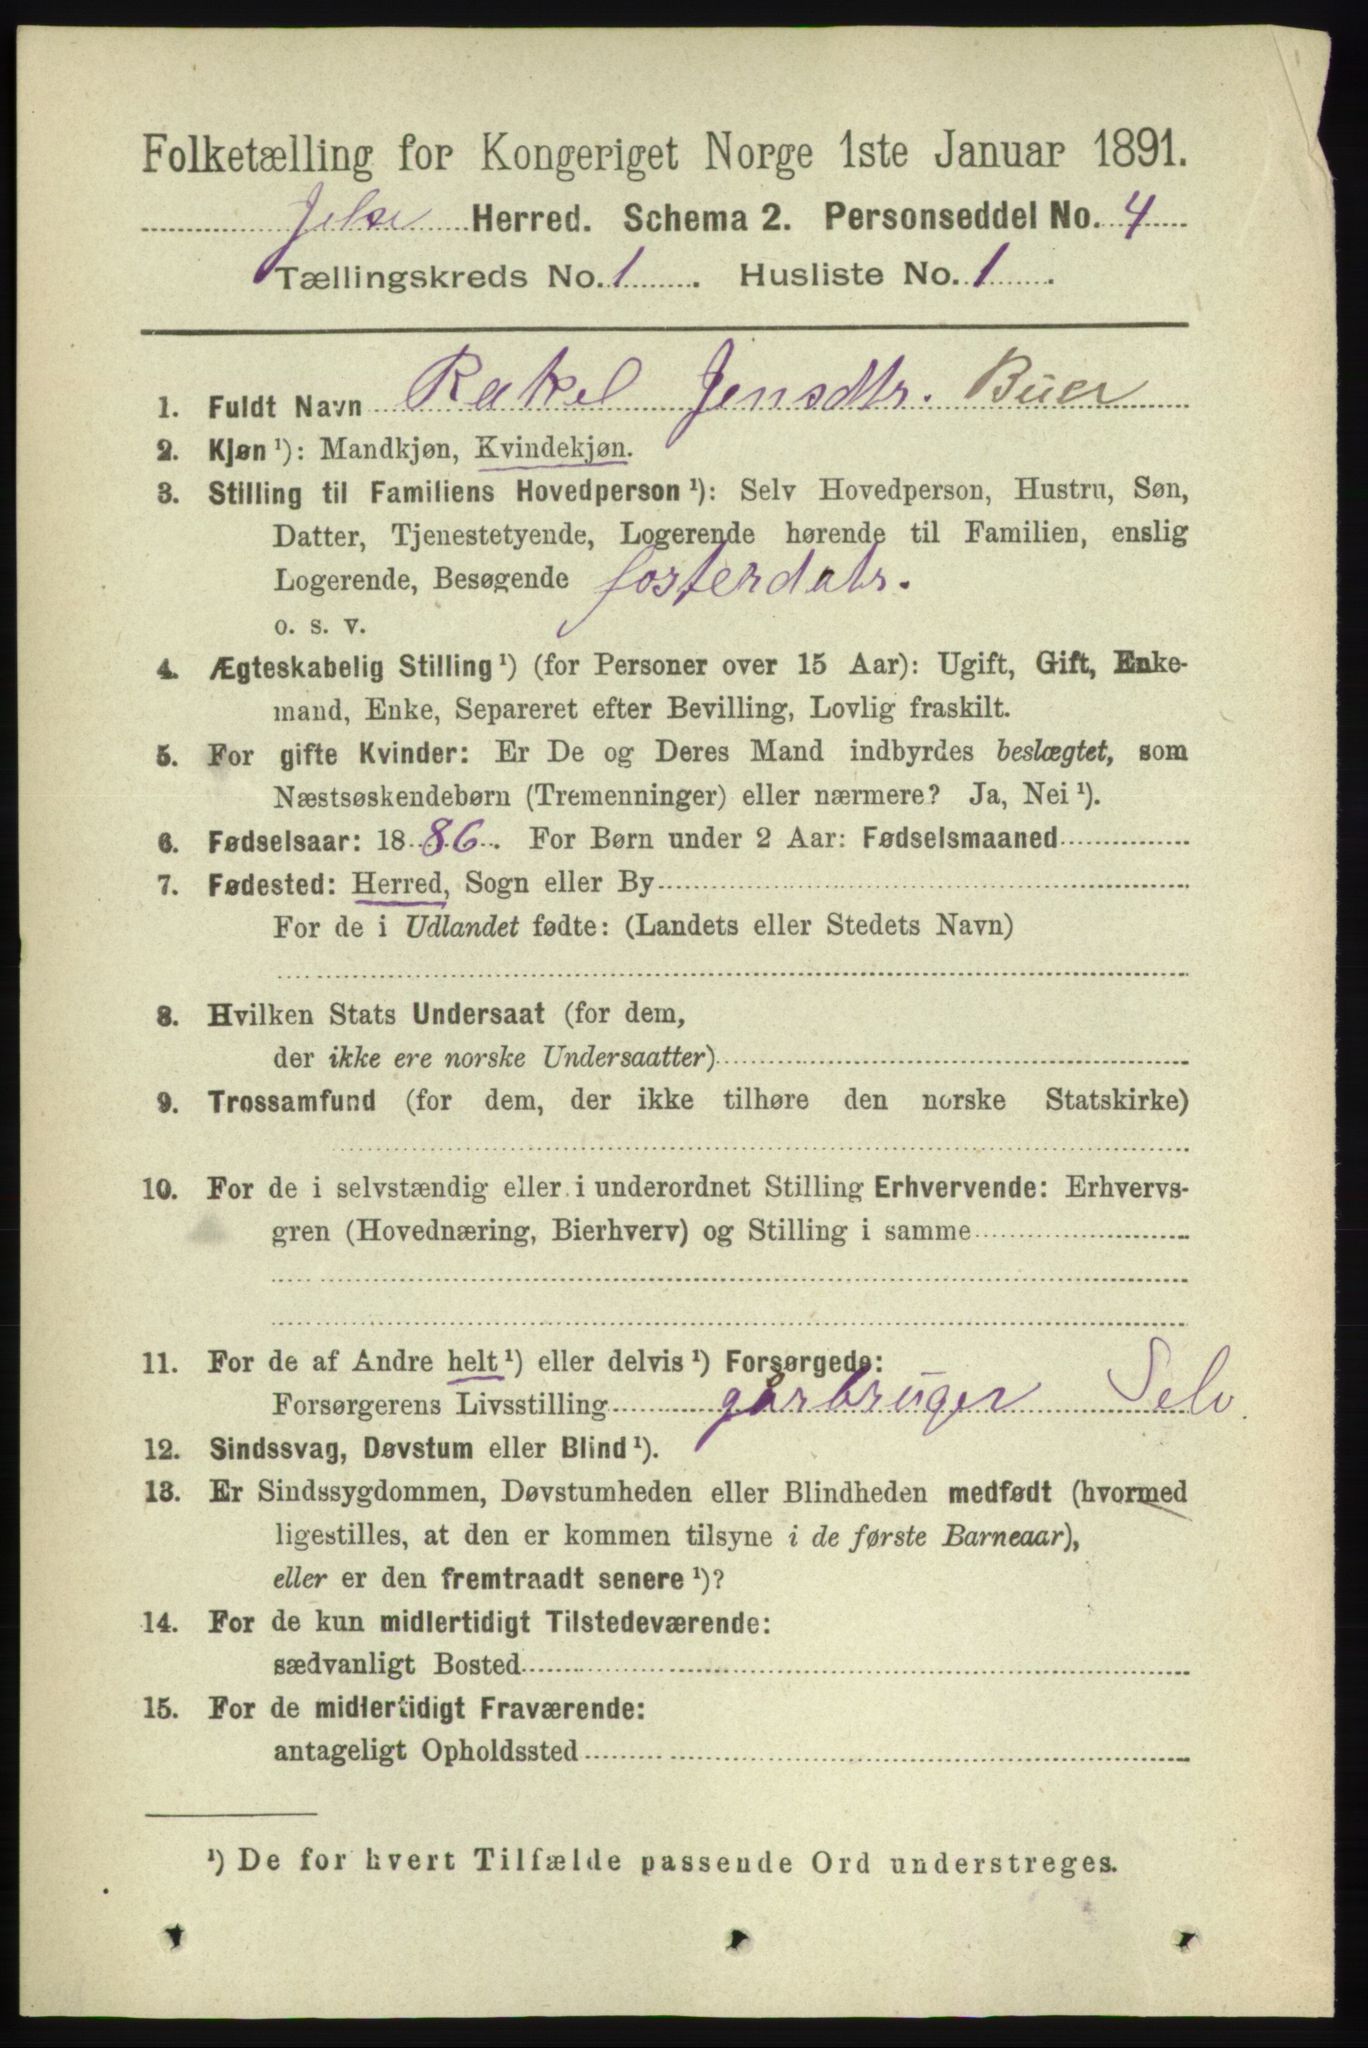 Folketælling for Kongeriget Norge 1ste Januar 1891.
Jelse Herred. Schema 2. Personseddel No. 4
Tællingskreds No. 1. Husliste No. 1.
1. Fuldt Navn Rakel Jensdtr. Buer
2. Kjøn ¹): Mandkjøn, Kvindekjøn.
3. Stilling til Familiens Hovedperson ¹): Selv Hovedperson, Hustru, Søn,
Datter, Tjenestetyende, Logerende hørende til Familien, enslig
Logerende, Besøgende fosterdatr.
o. s. v.
4. Ægteskabelig Stilling ¹) (for Personer over 15 Aar): Ugift, Gift, Enke-
mand, Enke, Separeret efter Bevilling, Lovlig fraskilt.
5. For gifte Kvinder: Er De og Deres Mand indbyrdes beslægtet, som
Næstsøskendebørn (Tremenninger) eller nærmere? Ja, Nei ¹).
6. Fødselsaar: 1886. For Børn under 2 Aar: Fødselsmaaned
7. Fødested: Herred, Sogn eller By
For de i Udlandet fødte: (Landets eller Stedets Navn)
8. Hvilken Stats Undersaat (for dem,
der ikke ere norske Undersaatter)
9. Trossamfund (for dem, der ikke tilhøre den norske Statskirke)
10. For de i selvstændig eller i underordnet Stilling Erhvervende: Erhvervs-
gren (Hovednæring, Bierhverv) og Stilling i samme
11. For de af Andre helt ¹) eller delvis ¹) Forsørgede:
Forsørgerens Livsstilling gårbruger Selv
12. Sindssvag, Døvstum eller Blind ¹).
13. Er Sindssygdommen, Døvstumheden eller Blindheden medfødt (hvormed
ligestilles, at den er kommen tilsyne i de første Barneaar),
eller er den fremtraadt senere ¹)?
14. For de kun midlertidigt Tilstedeværende:
sædvanligt Bosted
15. For de midlertidigt Fraværende:
antageligt Opholdssted
¹) De for hvert Tilfælde passende Ord understreges.